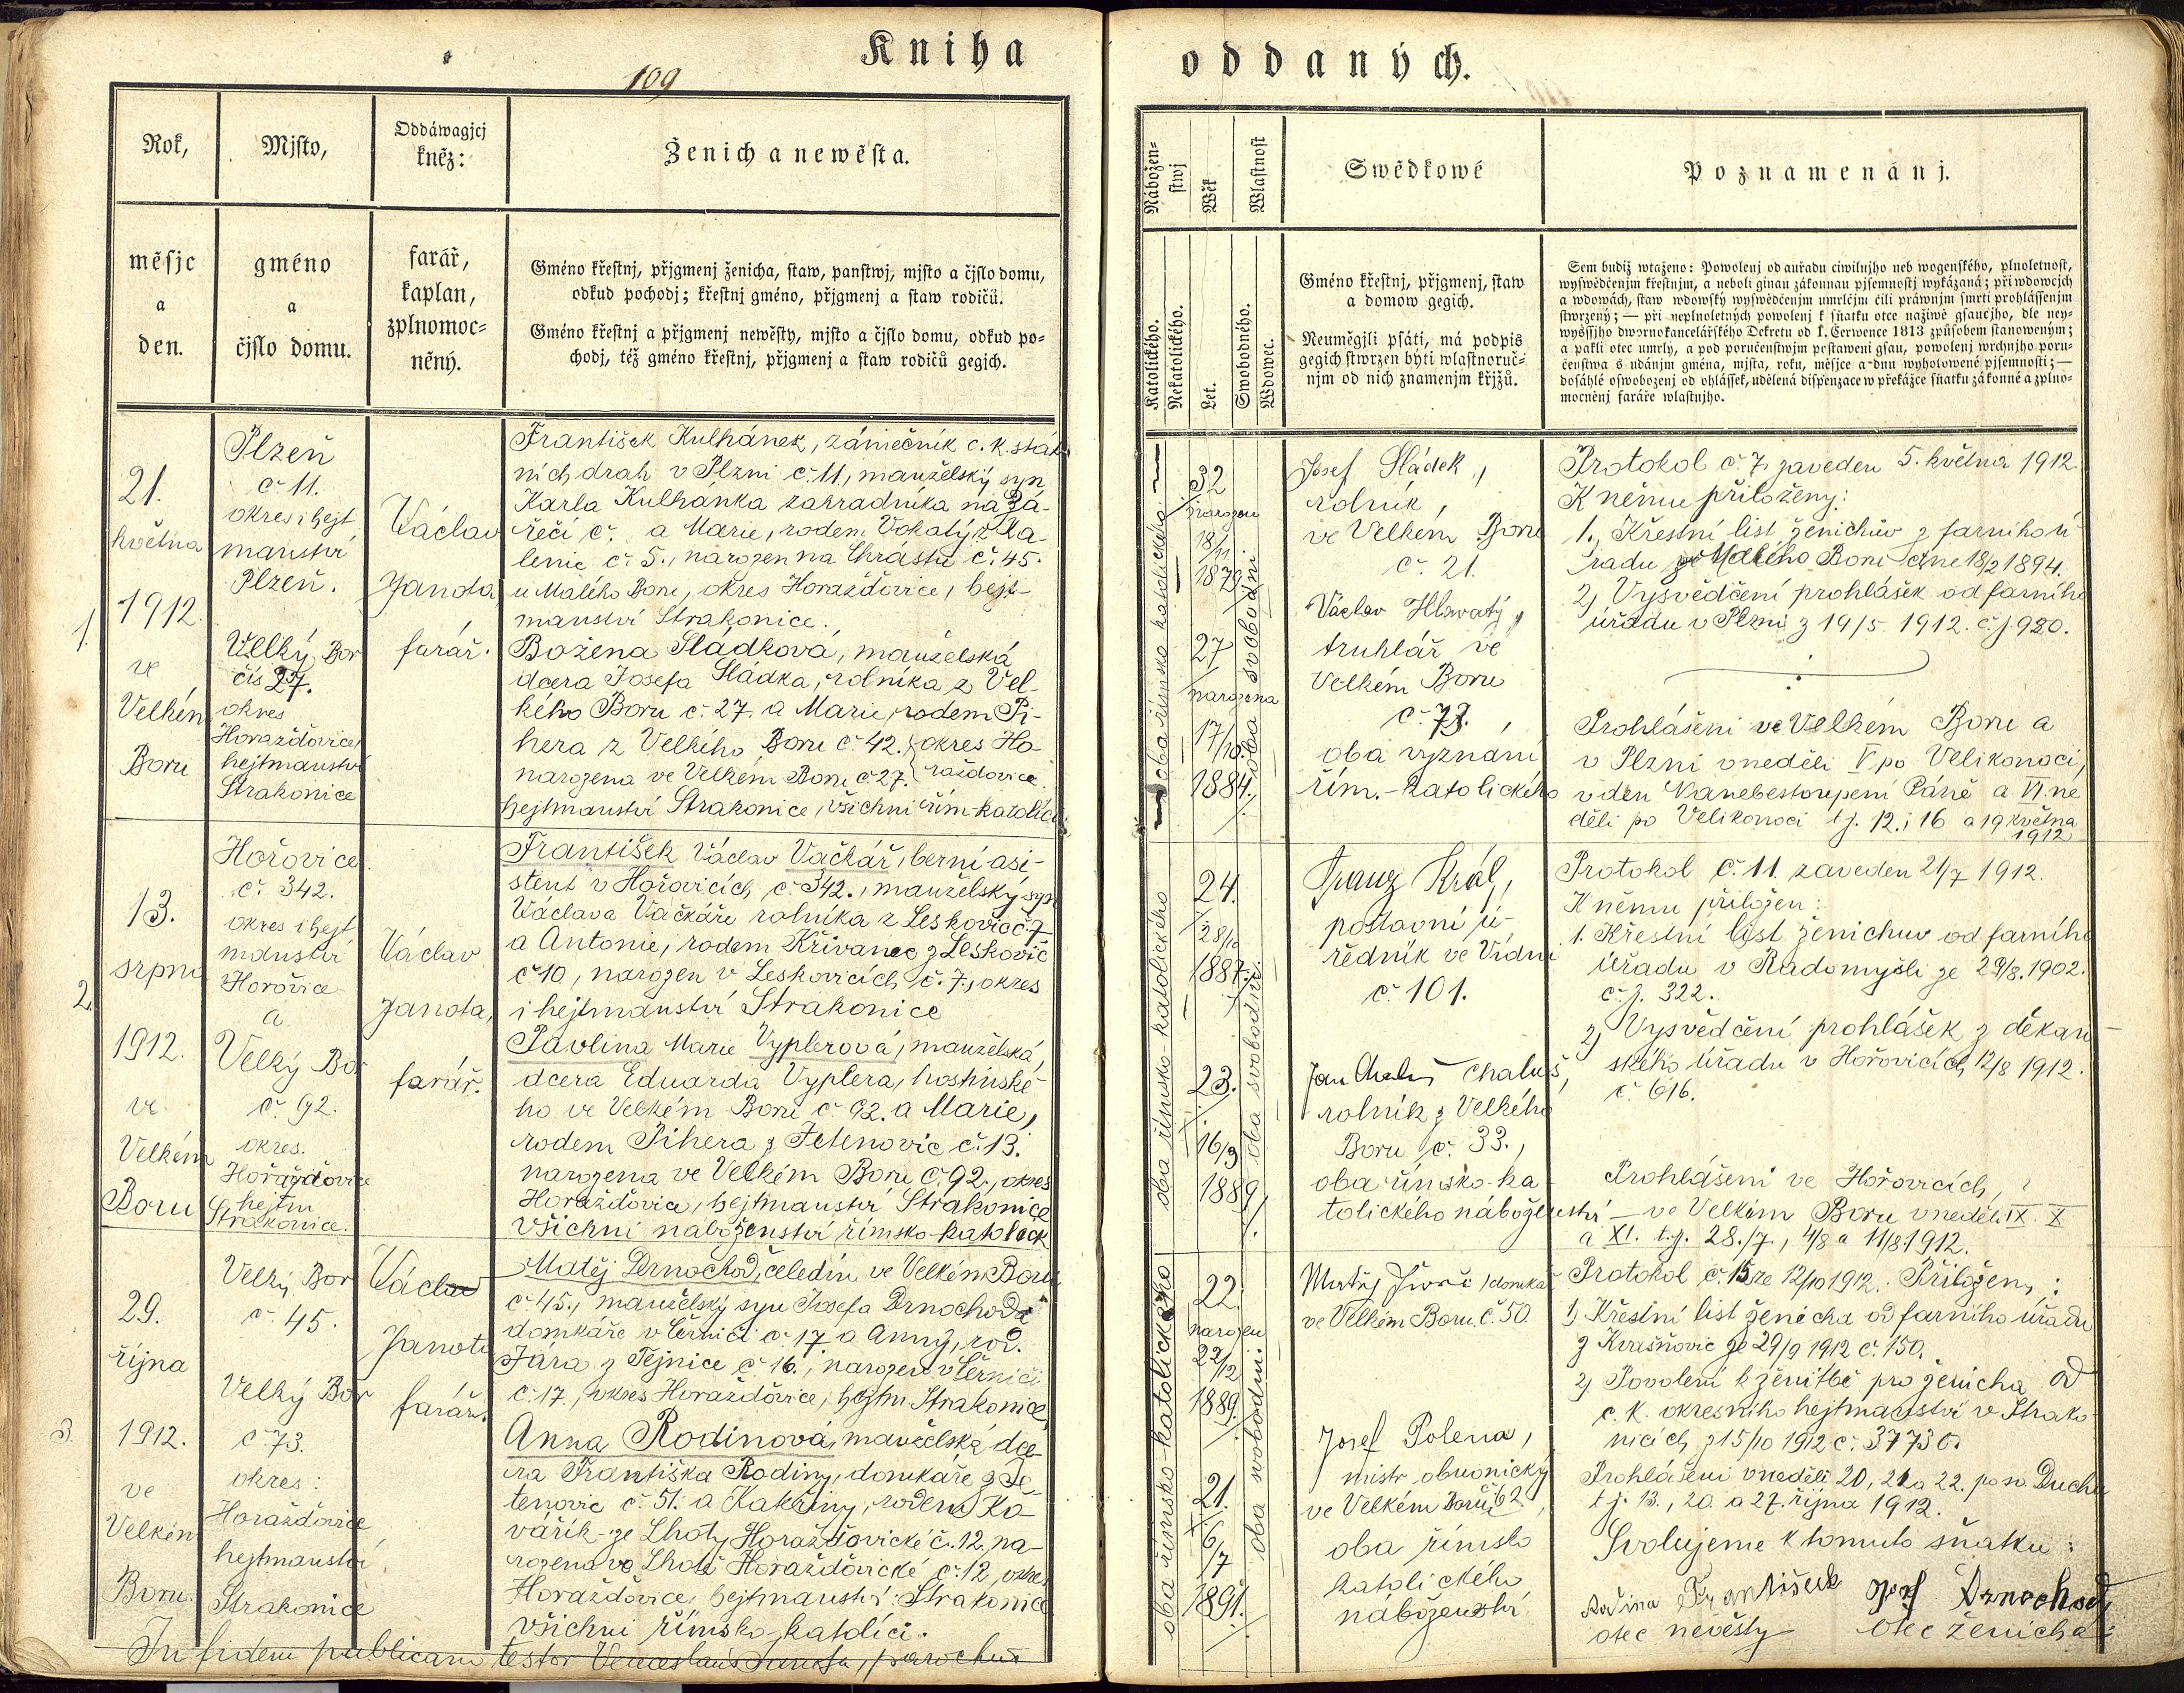 Kniha
109
Rok,
měsjc
a
den.
Mjsto,
gméno
a
čjslo domu.
Oddáwagjcj
kněz:
farář,
kaplan,
zplnomoc=
něný.
Ženich a newěsta.
Gméno křestnj, přjgmenj ženicha, staw, panstwj, mjsto a čjslo domu,
odkud pochodj; křestnj gméno, přjgmenj a staw rodičů.
Gméno křestnj a přjgmenj newěsty, mjsto a čjslo domu, odkud po=
chodj, též gméno křestnj, přjgmenj a staw rodičů gegich.
1.
21.
května
1912.
ve
Velkém
Boru
Plzeň
č. 11.
okres i hejt
manství
Plzeň.
Velký Bor
čís 27.
okres
Horažďovice,
hejtmanství
Strakonice
Václav
Janota,
farář.
František Kulhánek, zámečník c. k. stát-
ních drah v Plzni č. 11, manželský syn
Karla Kulhánka zahradníka na Zá-
řečí č. a Marie, rodem Vokatý z Ka-
lenic č. 5., narozen na Chrástu č. 45.
u Malého Boru, okres Horažďovice, hejt-
manství Strakonice.
Božena Sládková, manželská
dcera Josefa Sládka, rolníka z Vel-
kého Boru č. 27. a Marie, rodem Pi-
hera z Velkého Boru č. 42. okres Ho-
narozena ve Velkém Boru č. 27. ražďovice
hejtmanství Strakonice, všichni řím-katolíci
2.
13.
srpna
1912.
ve
Velkém
Boru
Hořovice
č. 342.
okres i hejt
manství
Hořovice
a
Velký Bor
č. 92.
okres.
Horažďovice
hejtm
Strakonice.
Václav
Janota,
farář.
František Václav Vačkář, berní asi-
stent v Hořovicích č. 342., manželský syn
Václava Vačkáře rolníka z Leskovic č. 7
a Antonie, rodem Křivanec z Leskovic
č. 10, narozen v Leskovicích č. 7., okres
i hejtmanství Strakonice
Pavlina Marie Vyplerová, manželská
dcera Eduarda Vyplera, hostinské-
ho ve Velkém Boru č. 92. a Marie,
rodem Pihera z Jetenovic č. 13.
narozena ve Velkém Boru č. 92., okres
Horažďovice, hejtmanství Strakonice
všichni náboženství římsko-katolick
3.
29.
října
1912.
ve
Velkém
Boru.
Velký Bor
č. 45.
Velký Bor
č. 73.
okres:
Horažďovice
hejtmanství
Strakonice
Václav
Janota
farář.
Matěj Drnochod, čeledín ve Velkém Boru
č. 45., manželský syn Josefa Drnochoda
domkáře v Černíči č. 17. a Anny, rod.
Jára z Tejnice č. 16., narozen v Černíči
č. 17., okres Horažďovice, hejtm Strakonice
Anna Rodinová, manželská dce-
ra Františka Rodiny, domkáře z Je-
tenovic č. 51. a Kateřiny, rodem Ko-
vářík ze Lhoty Horažďovické č. 12. na-
rozena ve Lhotě Horažďovické č. 12, okres
Horažďovice, hejtmanství: Strakonice
všichni římsko-katolíci.
In fidem publicam testor Venceslaus Janota, parochus
oddaných.
Nábožen=
stwj
Wěk
Wlastnost
Katolického.
Nekatolického.
Let.
Swobodného.
Wdowec.
Swědkowé
Gméno křestnj, přjgmenj, staw
a domow gegich.
Neuměgjli psáti, má podpis
gegich stwrzen býti wlastnoruč=
njm od nich znamenjm křjžů.
Poznamenánj.
Sem budiž wtaženo: Powolenj od auřadu ciwilnjho neb wogenského, plnoletnost,
wyswědčenjm křestnjm, a neboli ginau zákonnau pjsemnostj wykázaná; při wdowcjch
a wdowách, staw wdowský wyswědčenjm umrlčjm čili práwnjm smrti prohlášenjm
stwrzený; — při neplnoletných powolenj k sňatku otce naživě gsaucjho, dle ney=
wyššjho dwornokancelářského Dekretu od 1. Července 1813 způsobem stanoweným;
a pakli otec umrlý, a pod poručenstwjm postaweni gsau, powolenj wrchnjho poru=
čenstwa s udánjm gména, mjsta, roku, měsjce a dnu wyhotowené pjsemnosti; —
dosáhlé oswobozenj od ohlášek, udělená dispenzace w překážce sňatku zákonné a zplno=
mocněnj faráře wlastnjho.
oba římsko katolického
32
narozen
18/11
1879
27
narozena
17/10.
1884.
oba svobodni
Josef Sládek,
rolník,
ve Velkém Boru
č. 21.
Václav Hlavatý,
truhlář ve
Velkém Boru
č. 73.,
oba vyznání
řím.-katolického
Protokol č. 7. zaveden 5. května 1912.
K němu přiloženy:
1., Křestní list ženichův z farního ú-
řadu z Malého Boru dne 18/2 1894.
2) Vysvědčení prohlášek od farního
úřadu v Plzni z 19/5 1912. č. j. 980.
Prohlášení ve Velkém Boru a
v Plzni v neděli V po Velikonoci,
v den Nanebestoupení Páně a VI ne
děli po Velikonoci t. j. 12. i 16 a 19 května
1912
oba římsko-katolického
24.
28/10
1887.
23.
16/3
1889.
oba svobodni
Franz Král,
poštovní ú-
ředník ve Vídni
č. 101.
Jan Chaluš Chaluš,
rolník z Velkého
Boru č. 33.,
oba římsko-ka-
tolického náboženství
Protokol č. 11. zaveden 21/7 1912.
K němu přiložen:
1. Křestní list ženichův od farního
úřadu v Radomyšli ze 29/8. 1902.
č. j. 322.
2) Vysvědčení prohlášek z děkan-
ského úřadu v Hořovicích 12/8 1912.
č. 616.
Prohlášení ve Hořovicích,
— ve Velkém Boru v neděli IX. X
a XI. t. j. 28./7., 4/8 a 11/8 1912.
oba římsko-katolického
22.
narozen
22/2
1889.
21.
6/7
1891.
oba svobodni.
domkář
ve Velkém Boru č. 50.
Josef Polena,
mistr obuvnický
ve Velkém Boru č. 62,
oba římsko
katolického
náboženství
Protokol č. 15 ze 12/10 1912. Přiloženy:
1) Křestní list ženicha od farního úřadu
z Kvašňovic ze 29/9 1912 č. 150.
2) Povolení k ženitbě pro ženicha od
c. k. okresního hejtmanství v Strako-
nicích z 15/10 1912 č. 37730.
Prohlášení v neděli 20, 21 a 22. po sv. Duchu
t. j. 13., 20. a 27. října 1912.
Svolujeme k tomuto sňatku:
Rodina František
otec nevěsty
Josef Drnochod,
otec ženicha.